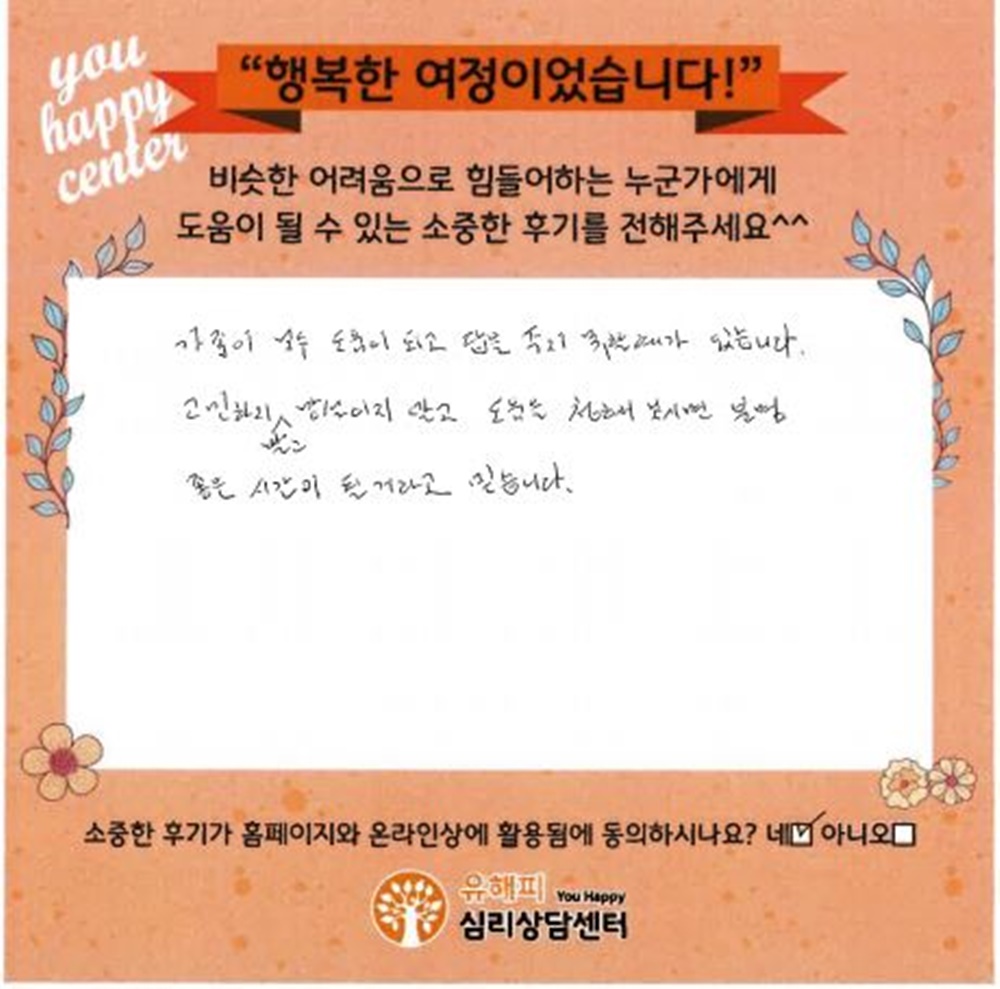 you
happy
center
“행복한 여정이었습니다!”
비슷한 어려움으로 힘들어하는 누군가에게
도움이 될 수 있는 소중한 후기를 전해주세요^^
가족이 모두 도움이 되고 답을 주지 못할때가 있습니다.
고민하지 말고 망설이지 말고 도움을 청해보시면 분명
좋은 시간이 될거라고 믿습니다.
소중한 후기가 홈페이지와 온라인상에 활용됨에 동의하시나요? 네☑ 아니오☐
유해피 You Happy
심리상담센터